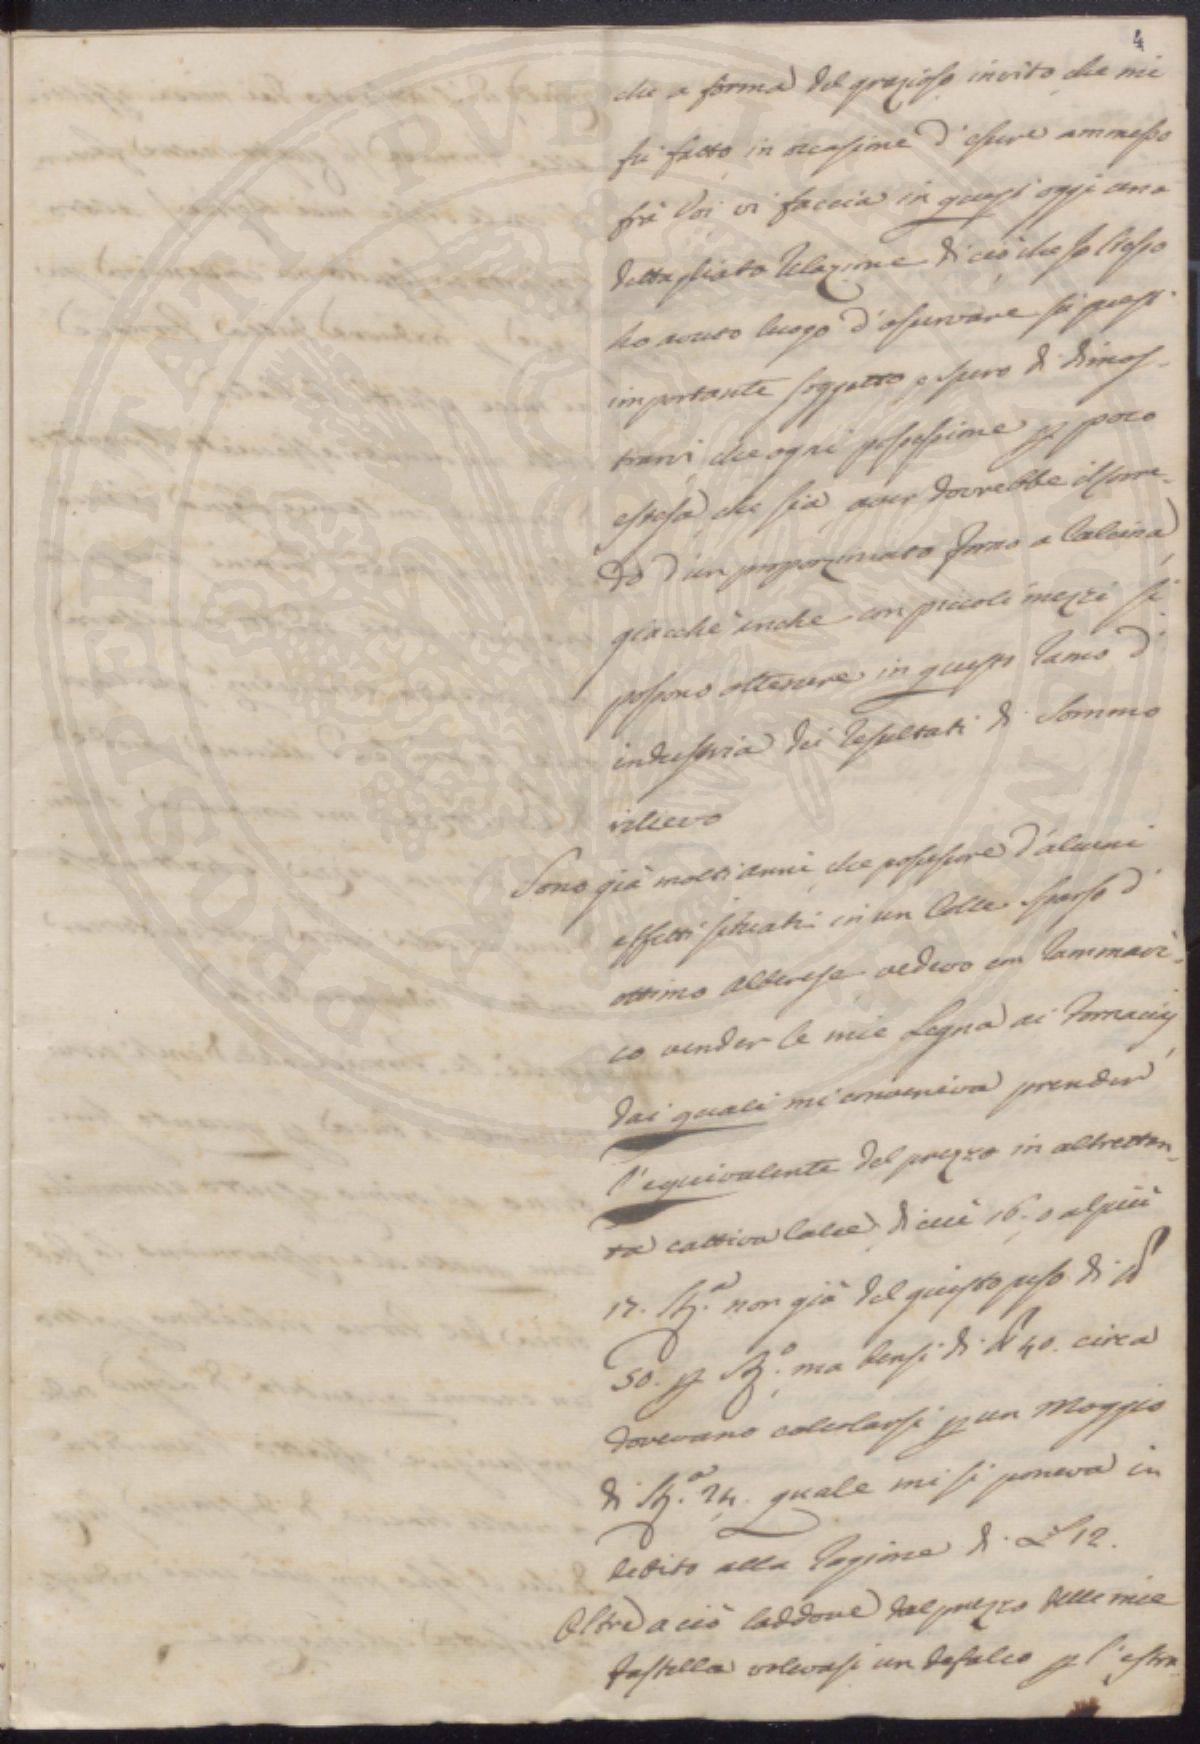 4
che a forma del grazioso invito che mi
fù fatto in occasione d'essere ammesso
frà Voi vi faccia in quest'oggi una
dettagliata relazione di ciò che Io stesso
ho avuto luogo d'osservare su questo
importante soggetto e spero di dimos-
trarvi che ogni possessione p poco
estesa che sia aver dovrebbe il corre-
do d'un proporzionato forno a Calcina
giacchè anche con piccoli mezzi si
possono ottenere in questo ramo d'
industria dei resultati di sommo
rilievo
Sono già molti anni che possessore d'alcuni
effetti situati in un Colle sparso d'
ottimo Alberese vedevo con rammari-
co vender le mie Legna ai Fornaciaj
dai quali mi conveniva prender
l'equivalente del prezzo in altrettan-
ta cattiva Calce di cui 16. o al più
17. St.ª non già del giusto peso di lb
50. p St.º ma bensi di lb 40. circa
dovevano calcolarsi p un Moggio
di St.ª 24. quale mi si poneva in
debito alla ragione di £ 12.
Oltre a ciò laddove dal prezzo delle mie
fastella volevasi un defalco p l'estra-
PROSPERITATI PVBLICAE AVGENDAE